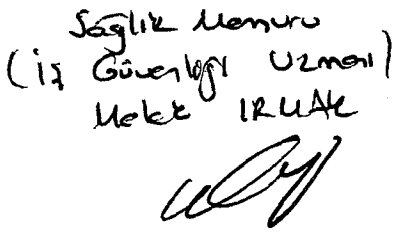 Sağlık Memuru
(İş Güvenliği Uzmanı)
Melek IRMAK